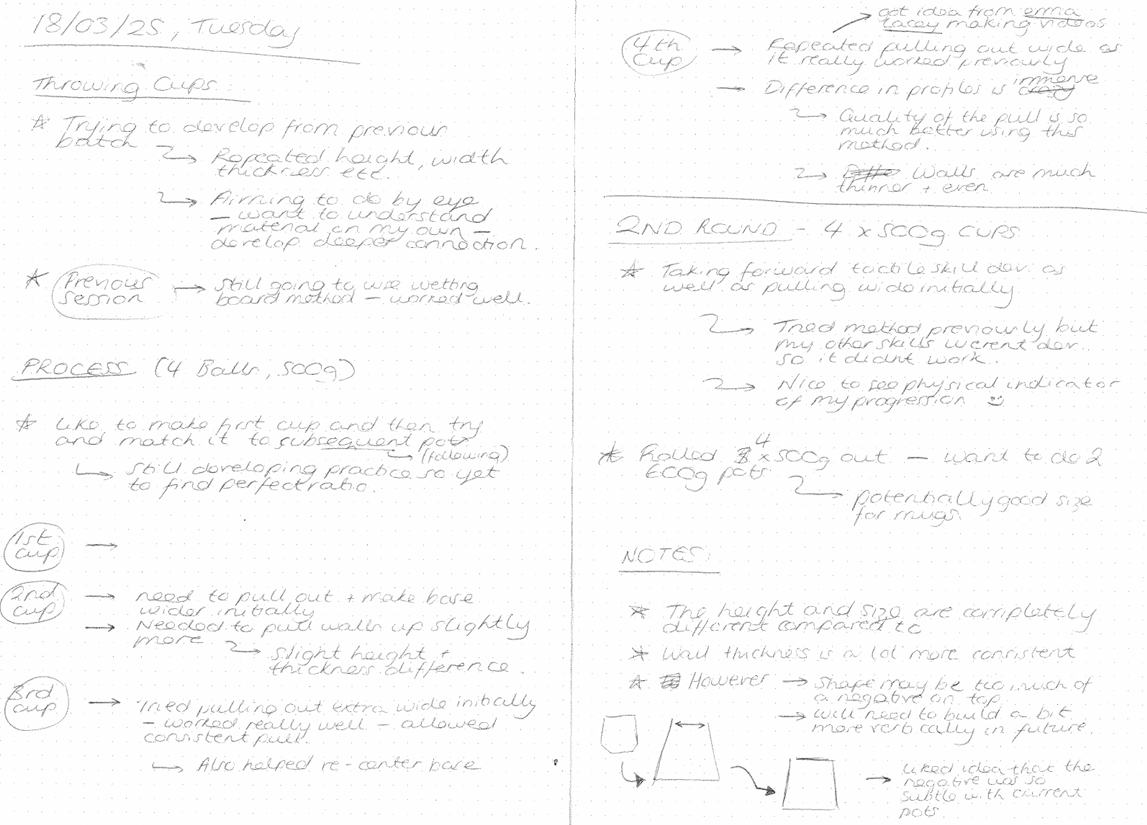 18/03/25, Tuesday
Throwing Cups:
* Trying to develop from previous
batch
↳ Repeated height, width
thickness etc.
↳ Aiming to do by eye
– want to understand
material on my own –
develop deeper connection.
* Previous
session → still going to use wetting
board method – worked well.
PROCESS (4 Balls, 500g)
* Like to make first cup and then try
and match it to subsequent pots
↳ (following)
↳ still developing practice so yet
to find perfect ratio.
1st
cup →
2nd
cup → need to pull out + make base
wider initially
→ Needed to pull walls up slightly
more
↳ slight height +
thickness difference.
3rd
cup → Tried pulling out extra wide initially
– worked really well – allowed
consistent pull.
↳ Also helped re-center base
got idea from
lacey making videos
4th
cup → Repeated pulling out wide as
it really worked previously
→ Difference in profiles is immense
↳ Quality of the pull is so
much better using this
method.
↳ Walls are much
thinner + even
2ND ROUND – 4 x 500g CUPS
* Taking forward tactile skill dev. as
well as pulling wide initially
↳ Tried method previously but
my other skills weren't dev.
so it didnt work.
↳ Nice to see physical indicator
of my progression
* Rolled 4 x 500g out – want to do 2
600g pots
↳ potentially good size
for mugs.
NOTES:
* The height and size are completely
different compared to
* Wall thickness is a lot more consistent
* However → shape may be too much of
a negative on top
→ will need to build a bit
more vertically in future.
→ liked idea that the
negative was so
subtle with current
pots.